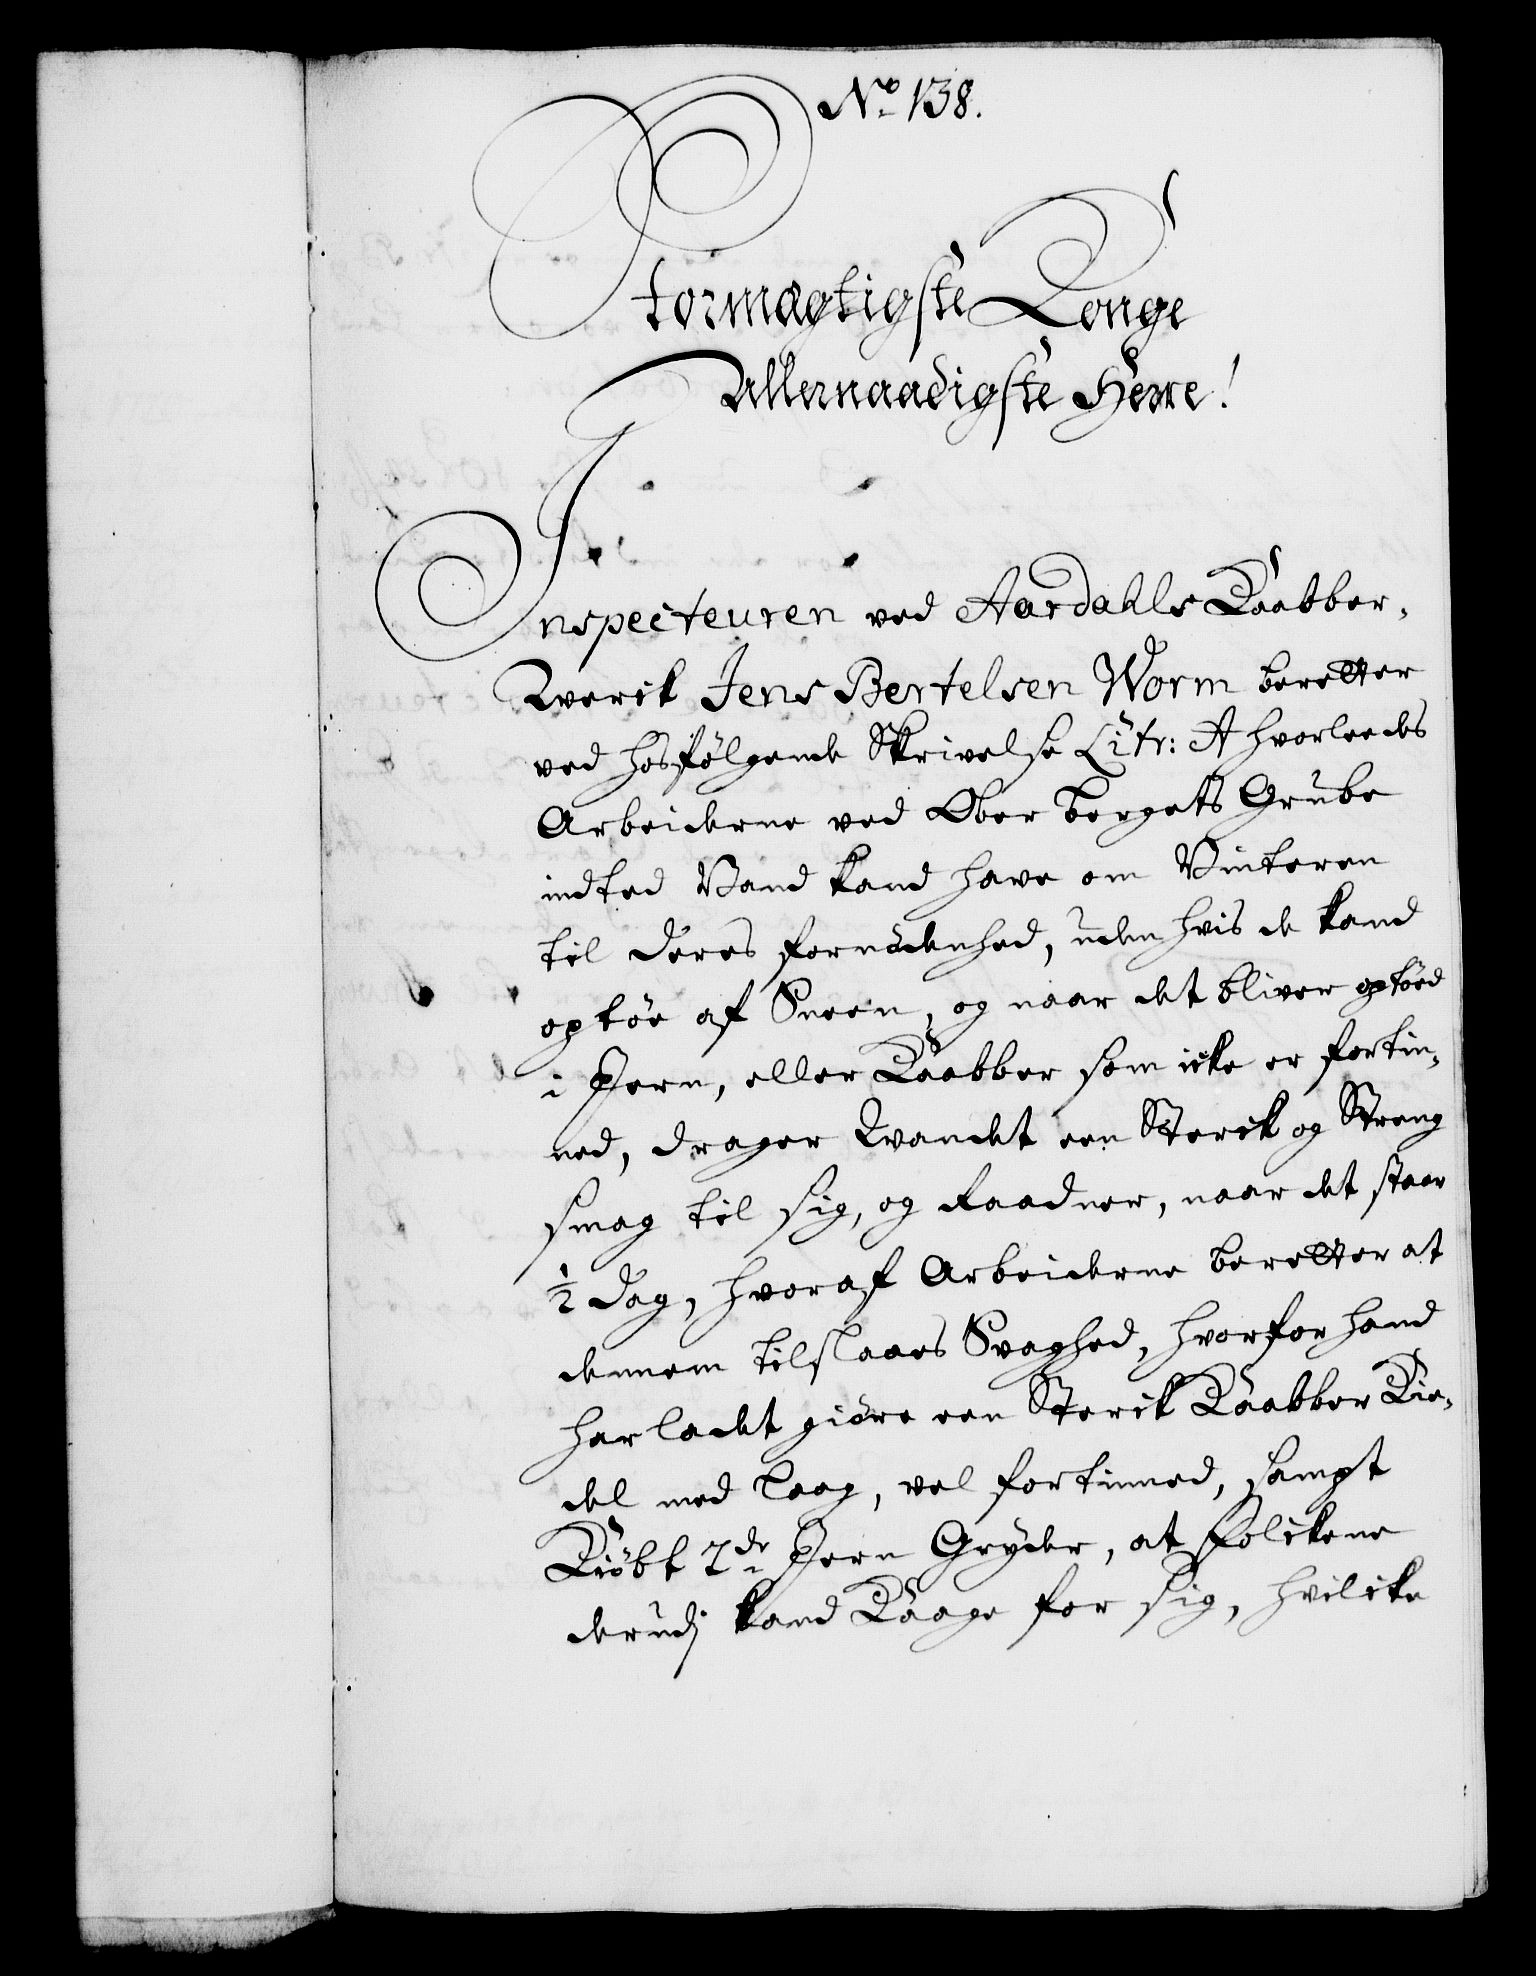 No 138.
Stormægtigste Konge
Allernaadigste Herre!
Inspecteuren ved Aardahls Kaabber-
Qverck Jens Bertelsen Worm beretter
ved hosfølgende Skrivelse Litr: A hvorleedes
Arbeiderne ved Ober bergets Grube
indted Vand kand have om Vinteren
til deres fornödenhed, uden hvis de kand
optöe af Sneen, og naar det bliver optöed
i Jern, eller Kaabber som icke er fortin-
ned, drager Qvandet een Sterck og Streng
smag til sig, og Raadner, naar det staar
1/2 dag, hvoraf Arbeiderne beretter at
dennem tilslaaes Svaghed, hvorfor hand
har ladet giöre een Sterck Kaabber Kie-
del med laag, vel fortinned, sampt
Kiöbt 2de Jern Gryder, at folckene
derudj kand Kaage for sig, hvilcke